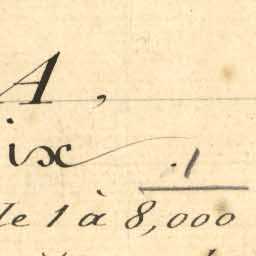 A,
ix .1
de 1 à 8,000